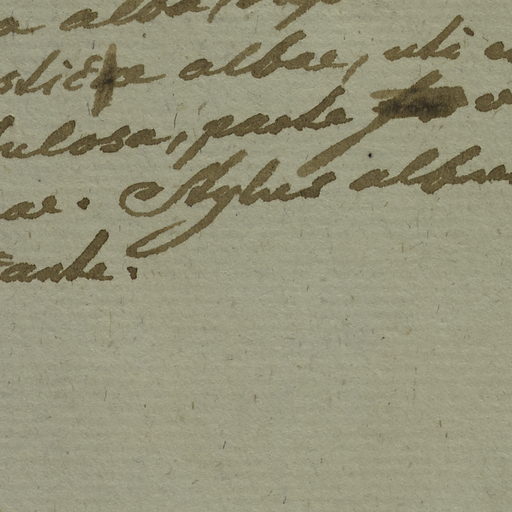 a alba,
albae, uti
ulosa, parte
ae. Stylus albus
tante.